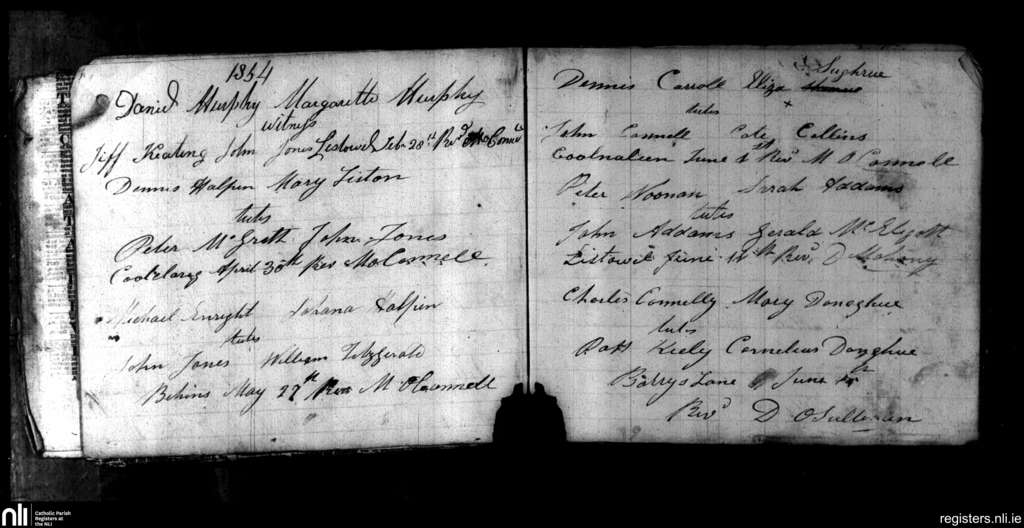 1854
Daniel Murphy Margarette Murphy
witness
Jeff Keating John Jones Listowel Feb 28th Revd M O Connell
Dennis Halpin Mary Liston
tutes
Peter McGrath John Jones
Coolclarig April 30th Rev M O Connell
Michael Enright Johana Halpin
tutes
John Jones William Fitzgerald
Behins May 27th Rev M O Connell
Sughrue
Dennis Carroll Eliza
tutes
John Connell Cate Collins
June 1st Revd M O Connell
Peter Noonan Sarah Addams
tutes
John Addams Gerald McEligott
Listowel June Revd D Mahony
Charles Connelly Mary Donoghue
tutes
Patt Keely Cornelius Donoghue
Barrys Lane June
Revd D OSullivan
nli
Catholic Parish
Registers at
the NLI
registers.nli.ie